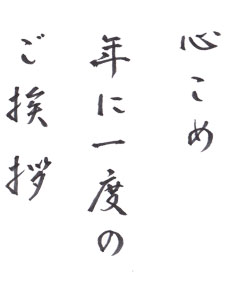 心こめ
年に一度の
ご挨拶